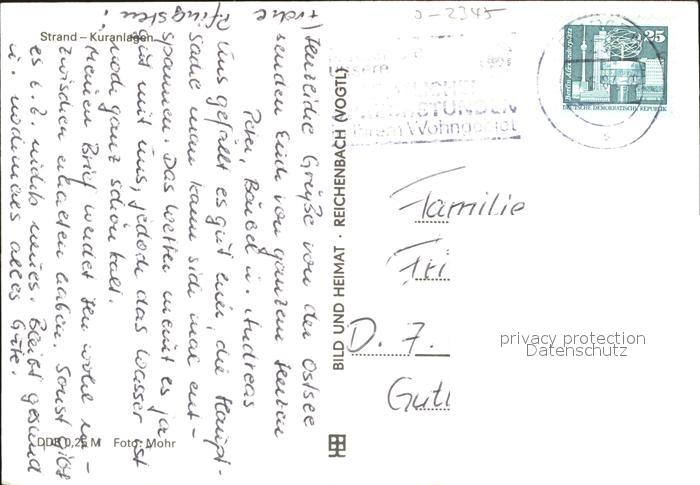 Strand – Kuranlagen
0-2345
Herzliche Grüße von der Ostsee
senden Euch von ganzem Herzen
Peter, Bärbel u. Andreas
Uns gefällt es gut hier, die Haupt-
sache man kann sich mal ent-
spannen. Das Wetter meint es ja
gut mit uns, jedoch das Wasser ist
noch ganz schön kalt.
Meinen Brief werdet Ihr wohl in-
zwischen erhalten haben. Sonst gibt
es z. B. nichts neues. Bleibt gesund
u. nochmals alles Gute.
Pfingsten!
BILD UND HEIMAT · REICHENBACH (VOGTL)
Unsere
STUNDEN
Ihrem Wohngebiet
25
Berlin, Alexanderplatz
DEUTSCHE DEMOKRATISCHE REPUBLIK
Familie
Fri
D. 7.
Gutl
privacy protection
Datenschutz
DDR 0,25 M Foto: Mohr